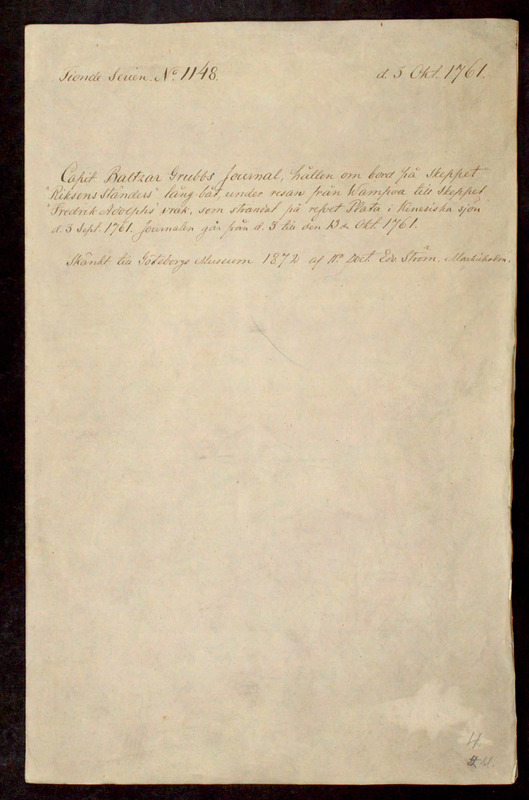 Tionde Serien. No 1148. d. 5 Okt. 1761.
Capit Baltzar Grubbs Journal, hållen om bord på Skeppet
"Riksens Ständers" lång båt, under resan från Wampoa till Skeppet
"Fredrik Adolphs" vrak, som strandat på refvet Plata i Kinesiska sjön
d. 3 Sept. 1761. Journalen går från d. 5 till den 13de Okt. 1761.
Skänkt till Göteborgs Museum 1872 af Hr Doct. Edv. Ström.
H.